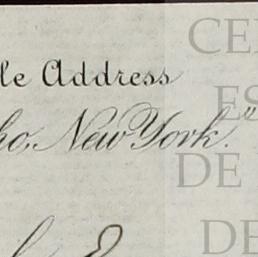 le Address
ho, New York."
CE
ES
DE
DE